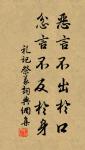 惡言不出於口
忿言不反於身
礼记祭义词典网集